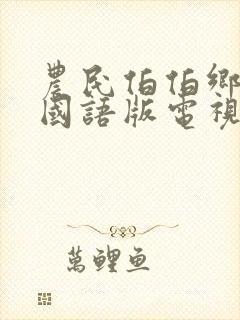 農民伯伯鄉
國語版電視
萬鯉魚